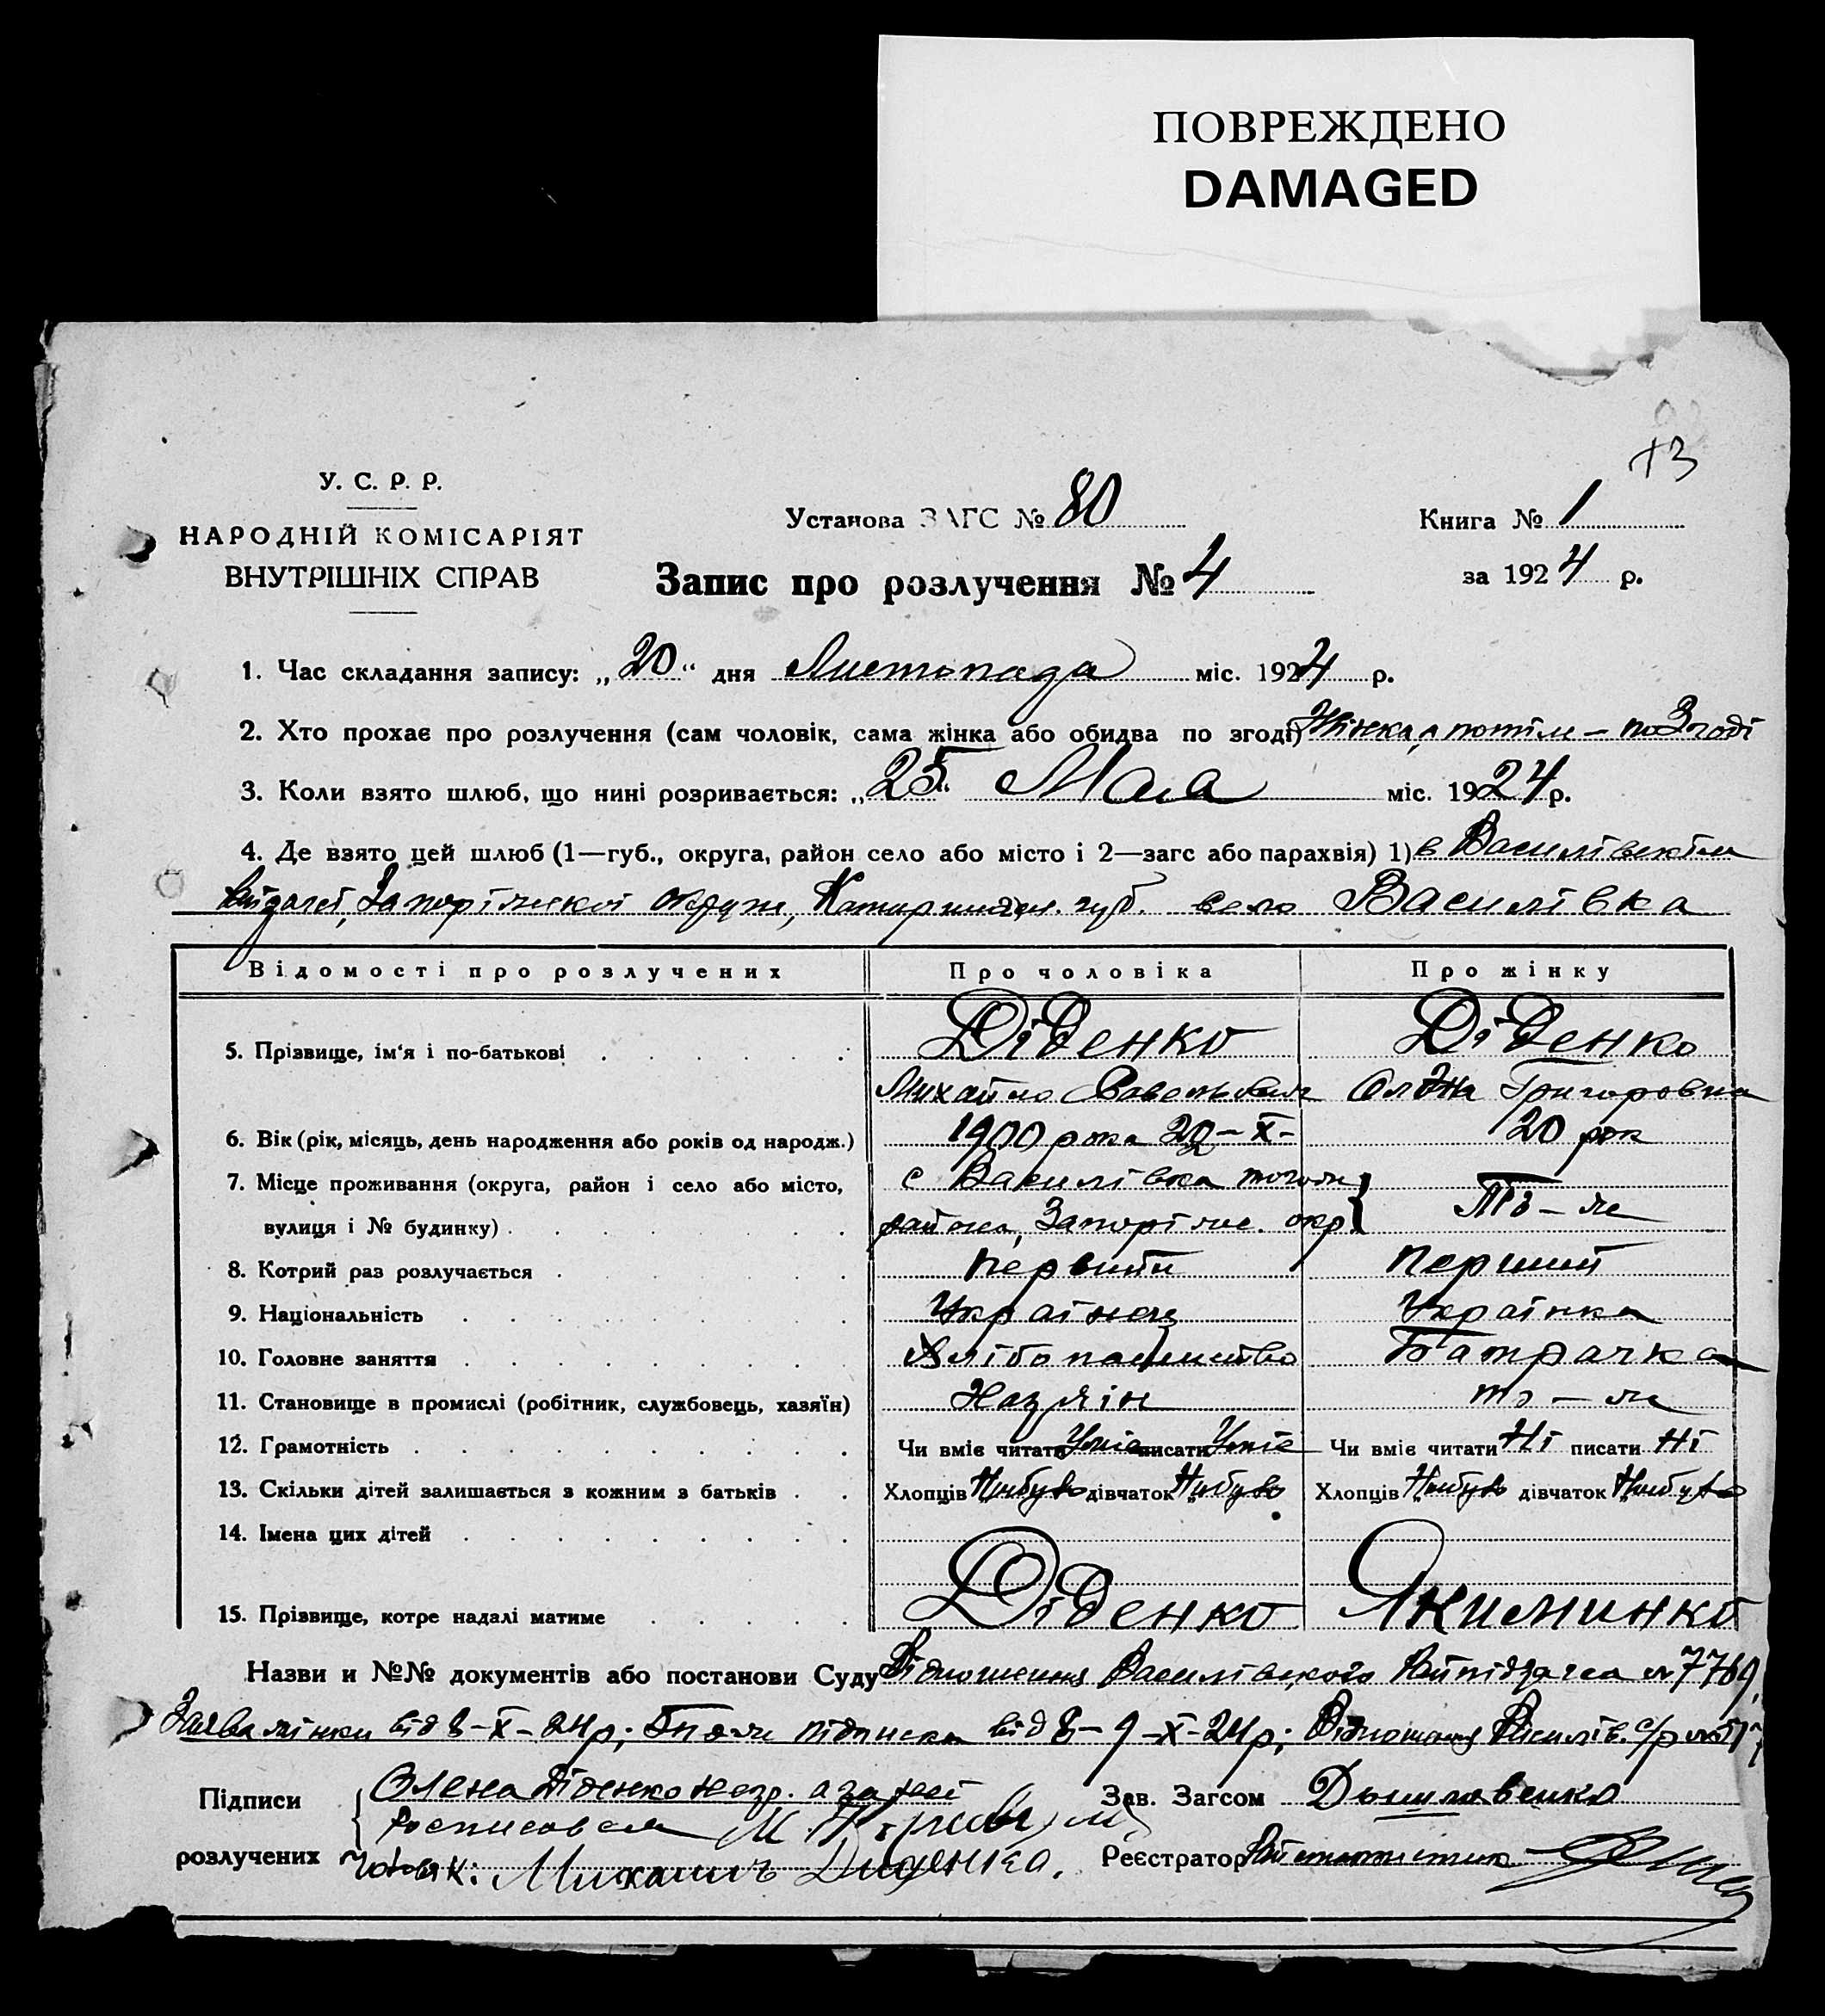 ПОВРЕЖДЕНО
DAMAGED
У. С. Р. Р.
НАРОДНІЙ КОМІСАРІЯТ
ВНУТРІШНІХ СПРАВ
Установа ЗАГС № 80
Книга № 1
Запис про розлучення № 4
за 1924 р.
1. Час складання запису: „20“ дня Листопада міс. 1924 р.
2. Хто прохає про розлучення (сам чоловік, сама жінка або обидва по згоді) Жінка, а потім – по Згоді
3. Коли взято шлюб, що нині розривається: „25“ Мая міс. 1924 р.
4. Де взято цей шлюб (1—губ., округа, район село або місто і 2—загс або парахвія) 1) в Василівскім
Запоріжскої округи, губ. село Василівка
Відомості про розлучених Про чоловіка Про жінку
5. Прізвище, ім‘я і по-батькові Діденко Діденко
Михайло Савельевич Олена Григоровна
6. Вік (рік, місяць, день народження або років од народж.) 1900 рока 20-X- 20 рок
7. Місце проживання (округа, район і село або місто, с Василівка того ж
вулиця і № будинку) района, Запоріжс. окр. То – же
8. Котрий раз розлучається первий перший
9. Національність Українец Українка
10. Головне заняття Хлібопашество Батрачка
11. Становище в промислі (робітник, службовець, хазяїн) Хазяін то – же
12. Грамотність Чи вміє читати Уміє писати Уміє Чи вміє читати Ні писати Ні
13. Скільки дітей залишається з кожним з батьків Хлопців Небуло дівчаток Небуло Хлопців Небуло дівчаток Небуло
14. Імена цих дітей
15. Прізвище, котре надалі матиме Діденко Якиминко
Назви и №№ документів або постанови Суду Відношення Василівского № 7769,
Заява жінки від 8-X-24р; підписка від 8-9-X-24р; Відношення Василів. с/р
Підписи Олена Діденко незр. а за неї Зав. Загсом
росписовсь
розлучених Чоловік: Михаилъ Диденко. Реєстратор